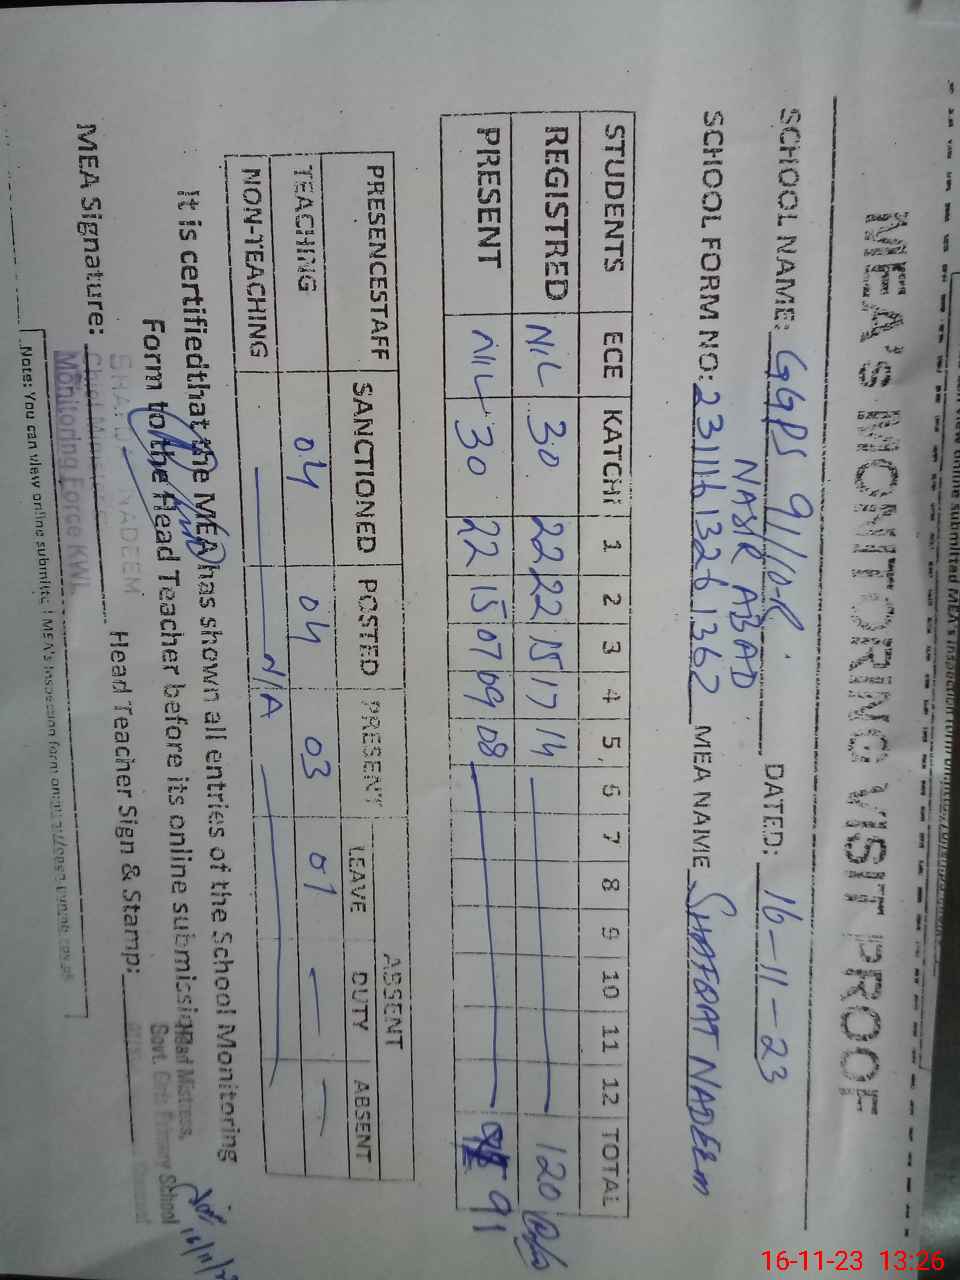 MEA'S MONITORING VISIT PROOF
SCHOOL NAME: GGPS 91/10-R DATED: 16-11-23
NASIR ABAD
SCHOOL FORM NO: MEA NAME SHAFQAT NADEEM
STUDENTS ECE KATCHI 1 2 3 4 5 6 7 8 9 10 11 12 TOTAL
REGISTRED NIL 30 22 22 15 17 14 120
PRESENT NIL 30 22 15 07 09 08 91
ABSENT
PRESENCESTAFF SANCTIONED POSTED PRESENT LEAVE DUTY ABSENT
TEACHING 04 04 03 01 — —
NON-TEACHING N/A
It is certifiedthat the MEA has shown all entries of the School Monitoring
Form to the Head Teacher before its online submission
Head Mistress,
Govt. Girls Primary School
16/11/
MEA Signature: Head Teacher Sign & Stamp:
NADEEM
Monitoring Force KWL
Note: You can view online submitted MEA's Inspection form on
16-11-23 13:26